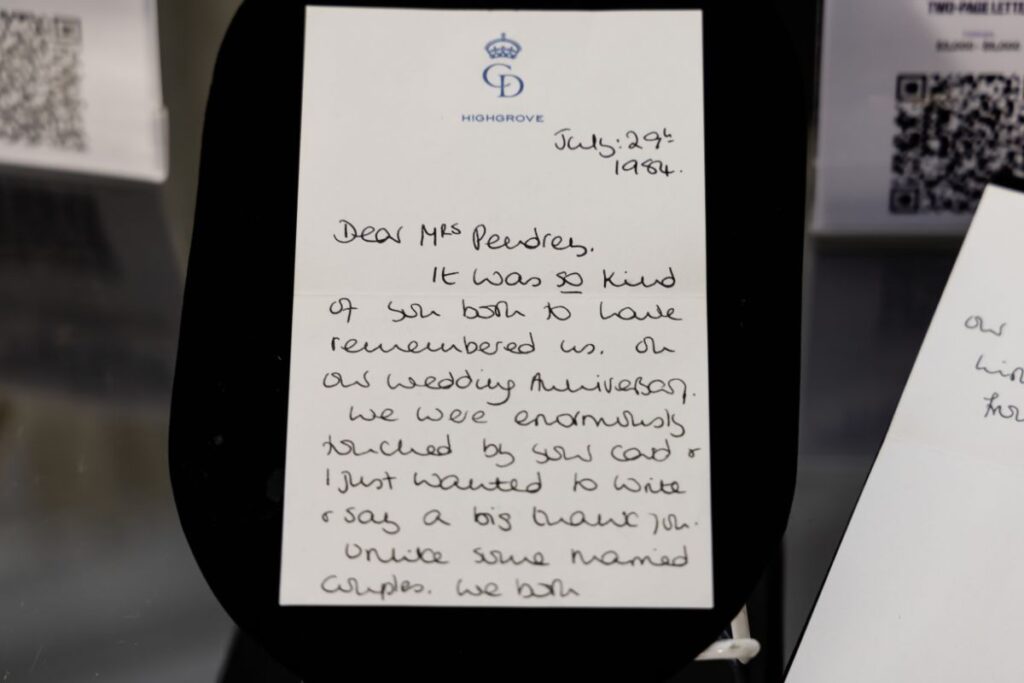 CD
HIGHGROVE
July: 29th
1984.
Dear Mrs Pendrey.
It was so kind
of you both to have
remembered us. on
our wedding Anniversary.
We were enormously
touched by your card &
I just wanted to write
& say a big thank you.
Unlike some married
couples. we both
TWO-PAGE LETTE
our